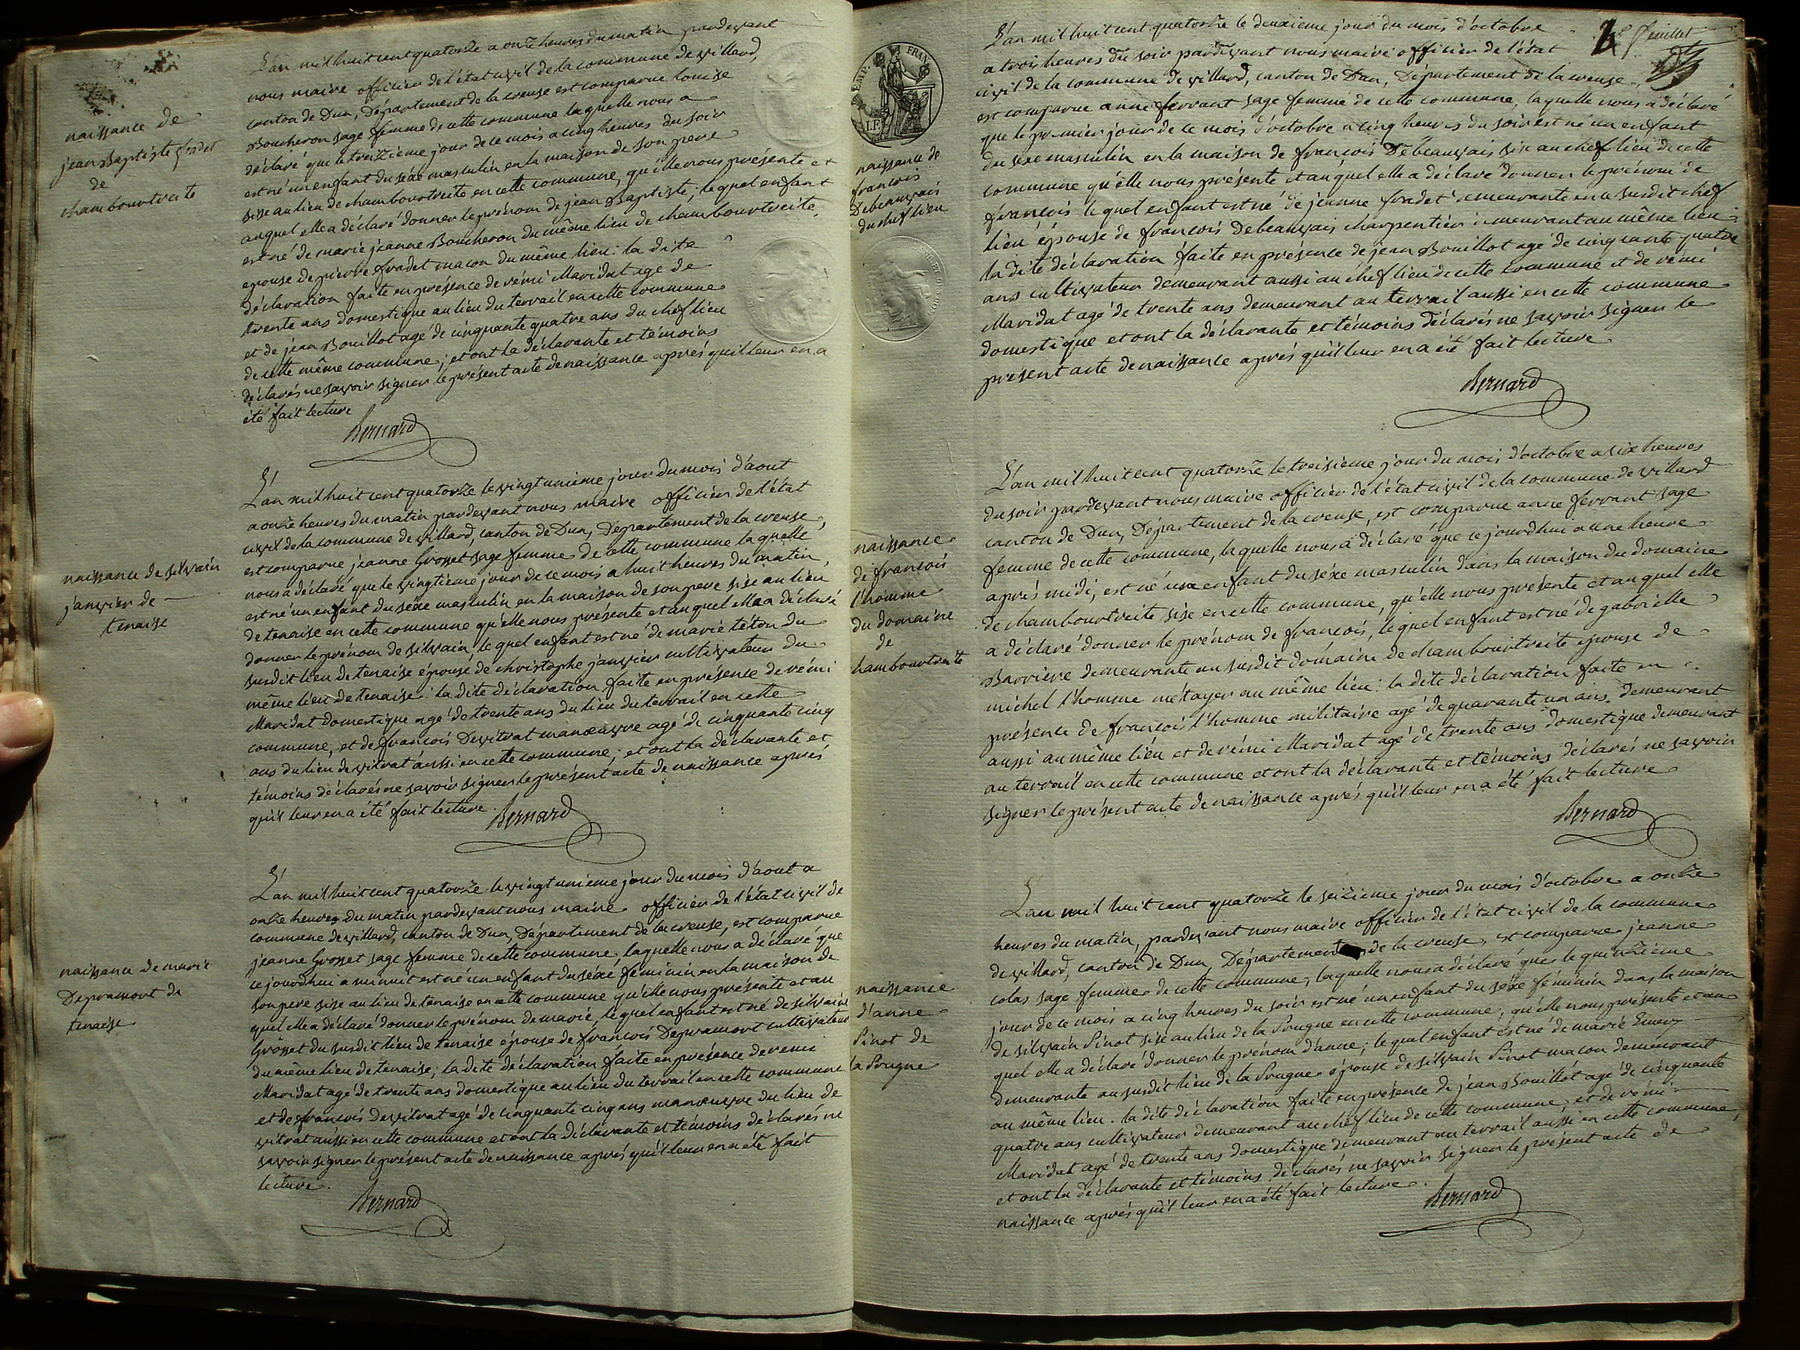 naissance de
jean Baptiste fradet
de
chambourtreite
L'an mil huit cent quatorze a onze heures du matin pardevant
nous maire officier de l'état civil de la commune de villard,
canton de Dun, Département de la creuse est comparue louise
Boucheron sage femme de cette commune laquelle nous a
déclaré que le treizieme jour de ce mois a cinq heures du soir
est né un enfant du sexe masculin en la maison de son pere
sise au lieu de chambourtreite en cette commune, qu'elle nous présente et
auquel elle a déclaré donner le prénom de jean Baptiste; lequel enfant
est né de marie jeanne Boucheron du même lieu de chambourtreite,
epouse de pierre fradet macon du même lieu: la dite
déclaration faite en présence de rémi Maridat age de
trente ans domestique au lieu du terrail en cette commune
et de jean Bouillot agé de cinquante quatre ans du chef lieu
de cette même commune; et ont la déclarante et témoins
déclarés ne savoir signer le présent acte de naissance après qu'il leur en a
été fait lecture
Bernard
naissance de silvain
janvier de
tenaise
L'an mil huit cent quatorze le vingt unieme jour du mois d'aout
a onze heures du matin pardevant nous maire officier de l'état
civil de la commune de villard, canton de Dun, Département de la creuse,
est comparue jeanne Grosset sage femme de cette commune laquelle
nous a déclaré que le vingtieme jour de ce mois a huit heures du matin,
est né un enfant du sexe masculin en la maison de son pere sise au lieu
de tenaise en cette commune qu'elle nous présente et auquel elle a déclaré
donner le prénom de silvain, lequel enfant est né de marie teton du
susdit lieu de tenaise épouse de christophe janvier cultivateur du
même lieu de tenaise: la dite déclaration faite en présence de rémi
Maridat domestique agé de trente ans du lieu du terrail en cette
commune, et de françois Devitrat manoeuvre agé de cinquante cinq
ans du lieu de vitrat aussi en cette commune; et ont la déclarante et
témoins déclarés ne savoir signer le présent acte de naissance après
qu'il leur en a été fait lecture. Bernard
naissance de marie
Depramont de
tenaise
L'an mil huit cent quatorze le vingt unieme jour du mois d'aout a
onze heures du matin pardevant nous maire officier de l'état civil de
commune de villard, canton de Dun, Département de la creuse, est comparue
jeanne Grosset sage femme de cette commune, laquelle nous a déclaré que
ce jourdhui a minuit est né un enfant du sexe féminin en la maison de
son pere sise au lieu de tenaise en cette commune qu'elle nous présente et au
quel elle a déclaré donner le prénom de marie, lequel enfant est né de silvaine
Grosset du susdit lieu de tenaise epouse de françois Depramont cultivateur
du même lieu de tenaise; la dite déclaration faite en présence de remi
Maridat agé de trente ans domestique au lieu du terrail en cette commune
et de françois Devitrat agé de cinquante cinq ans manoeuvre du lieu de
vitrat aussi en cette commune et ont la déclarante et témoins déclarés ne
savoir signer le présent acte de naissance après qu'il leur en a été fait
lecture.
Bernard
2e feuillet
naissance de
françois
Debeauvais
du chef lieu
L'an mil huit cent quatorze le deuxieme jour du mois d'octobre
a trois heures du soir pardevant nous maire officier de l'état
civil de la commune de villard, canton de Dun, Département de la creuse
est comparue anne ferrant sage femme de cette commune, laquelle nous a déclaré
que le premier jour de ce mois d'octobre a cinq heures du soir est né un enfant
du sexe masculin en la maison de françois Debeauvais sise au chef lieu de cette
commune qu'elle nous présente et auquel elle a déclaré donner le prénom de
françois lequel enfant est né de jeanne fradet demeurante en ce susdit chef
lieu épouse de françois Debeauvais charpentier demeurant au même lieu
la dite déclaration faite en présence de jean Bouillot agé de cinquante quatre
ans cultivateur demeurant aussi au chef lieu de cette commune et de rémi
Maridat agé de trente ans demeurant au terrail aussi en cette commune
domestique et ont la déclarante et témoins déclarés ne savoir signer le
present acte de naissance après qu'il leur en a été fait lecture
Bernard
naissance
de françois
l'homme
du domaine
de
chambourtreite
L'an mil huit cent quatorze le treisieme jour du mois d'octobre a six heures
du soir pardevant nous maire officier de l'état civil de la commune de villard
canton de Dun, Département de la creuse, est comparue anne ferrant sage
femme de cette commune, laquelle nous a déclaré que ce jourdhui a une heure
après midi, est né un enfant du sexe masculin dans la maison du domaine
de chambourtreite sise en cette commune, qu'elle nous présente et auquel elle
a déclaré donner le prénom de françois, lequel enfant est né de gabrielle
Barriere demeurante au susdit domaine de chambourtreite épouse de
michel l'homme métayer au même lieu: la dite déclaration faite en
présence de françois l'homme militaire agé de quarante un ans demeurant
aussi au même lieu et de rémi Maridat agé de trente ans domestique demeurant
au terrail en cette commune et ont la déclarante et témoins déclarés ne savoir
signer le présent acte de naissance après qu'il leur en a été fait lecture
Bernard
naissance
d'anne
Pinot de
la Pougne
L'an mil huit cent quatorze le seizieme jour du mois d'octobre a onze
heures du matin, pardevant nous maire officier de l'état civil de la commune
de villard, canton de Dun Département de la creuse, est comparue jeanne
colas sage femme de cette commune, laquelle nous a déclaré que le quinzieme
jour de ce mois a cinq heures du soir est né un enfant du sexe féminin dans la maison
de silvain Pinot sise au lieu de la Pougne en cette commune, qu'elle nous présente et au
quel elle a déclaré donner le prénom d'anne; lequel enfant est né de marie Emery
demeurante au susdit lieu de la Pougne épouse de silvain Pinot macon demeurant
au même lieu. la dite déclaration faite en présence de jean Bouillot agé de cinquante
quatre ans cultivateur demeurant au chef lieu de cette commune, et de rémi
Maridat agé de trente ans domestique demeurant au terrail aussi en cette commune,
et ont la déclarante et témoins déclarés ne savoir signer le présent acte de
naissance après qu'il leur en a été fait lecture.
Bernard